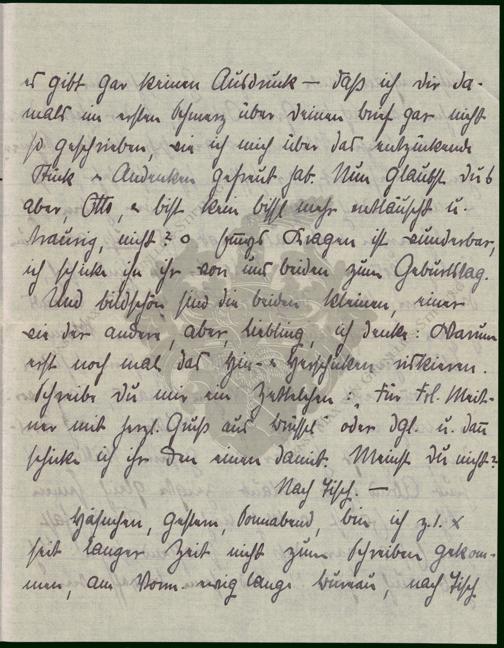 es gibt gar keinen Ausdruck — daß ich dir da-
mals im ersten Schmerz über deinen brief gar nicht
so geschrieben, wie ich mich über das entzückende
Stück Andenken gefreut hab. Nun glaubst du's
aber, Otto, bist kein bissl mehr enttäuscht u.
traurig, nicht? Kragen ist wunderbar,
ich schicke ihn ihr von uns beiden zum Geburtstag.
Und bildschön sind die beiden kleinen, einer
wie der andere, aber, liebling, ich denke: Warum
erst noch mal das Hin- Herschicken riskieren.
Schreibe Du mir ein Zettelchen: „Für Frl. Meit-
ner mit herzl. Gruß aus Brüssel" oder dgl. u. dann
schicke ich ihr den einen damit. Meinst du nicht?
Nach Tisch. —
Hähnchen, gestern, Sonnabend, bin ich z. 1. x
seit langer Zeit nicht zum schreiben gekom-
men, am Vorm. ewig lange Bureau, nach Tisch